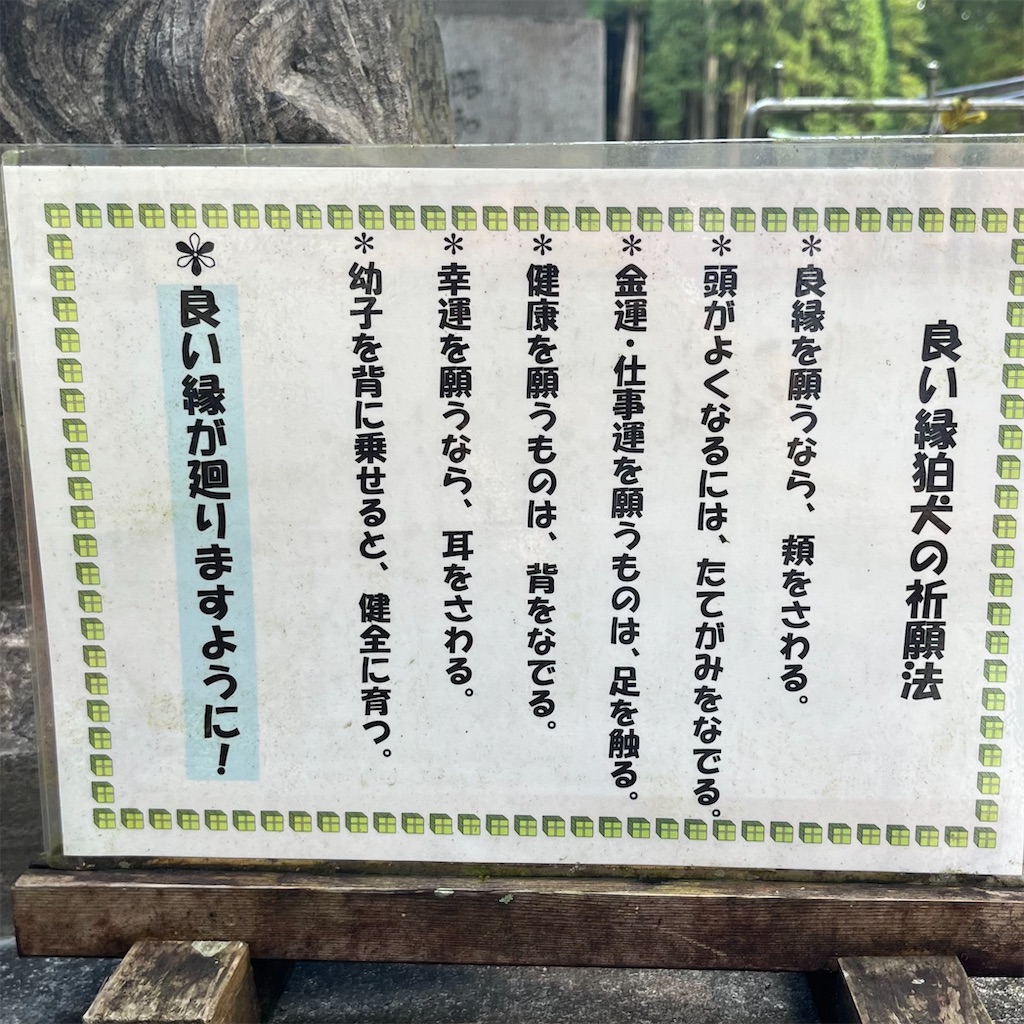 良い縁狛犬の祈願法
＊良縁を願うなら、頬をさわる。
＊頭がよくなるには、たてがみをなでる。
＊金運・仕事運を願うものは、足を触る。
＊健康を願うものは、背をなでる。
＊幸運を願うなら、耳をさわる。
＊幼子を背に乗せると、健全に育つ。
良い縁が廻りますように！